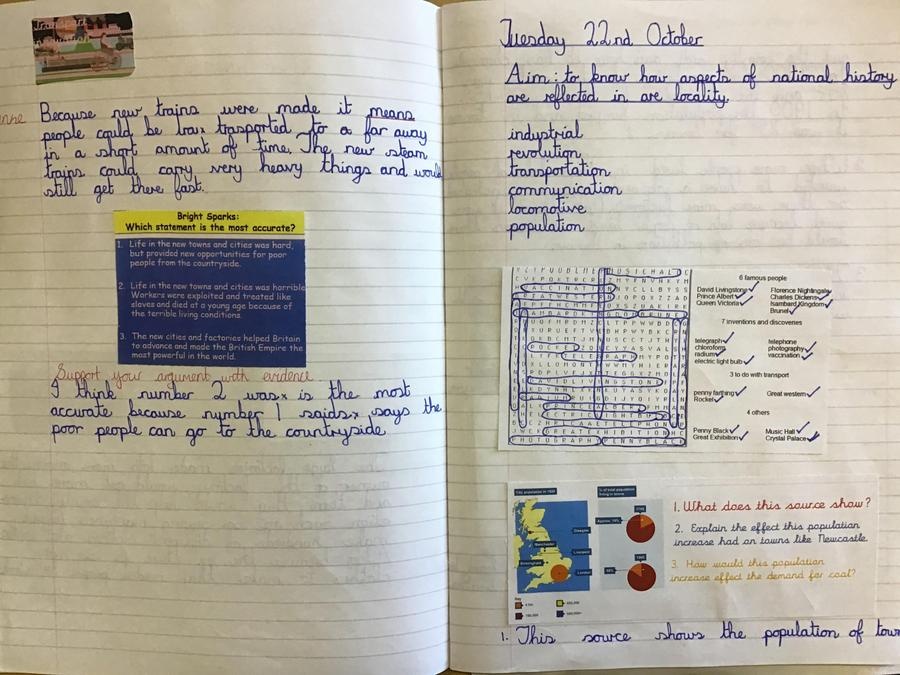 Because new trains were made it means
people could be trax trasported to a far away
in a short amount of time. The new steam
trains could cary very heavy things and would
still get there fast.
Bright Sparks:
Which statement is the most accurate?
1. Life in the new towns and cities was hard,
but provided new opportunities for poor
people from the countryside.
2. Life in the new towns and cities was horrible.
Workers were exploited and treated like
slaves and died at a young age because of
the terrible living conditions.
3. The new cities and factories helped Britain
to advance and made the British Empire the
most powerful in the world.
Support your argument with evidence
I think number 2 wasx is the most
accurate because number 1 saidsx says the
poor people can go to the countryside
Tuesday 22nd October
Aim: to know how aspects of national history
are reflected in are locality.
industrial
revolution
transportation
communication
locomotive
population
6 famous people
David Livingstone
Florence Nightingale
Prince Albert
Charles Dickens
Queen Victoria
Isambard Kingdom
Brunel
7 inventions and discoveries
telegraph
telephone
chloroform
photography
radium
vaccination
electric light bulb
3 to do with transport
penny farthing
Great western
Rocket
4 others
Penny Black
Music Hall
Great Exhibition
Crystal Palace
Glasgow
Manchester
Liverpool
Birmingham
London
Key
1. What does this source show?
2. Explain the effect this population
increase had on towns like Newcastle.
3. How would this population
increase effect the demand for coal?
1. This source shows the population of town